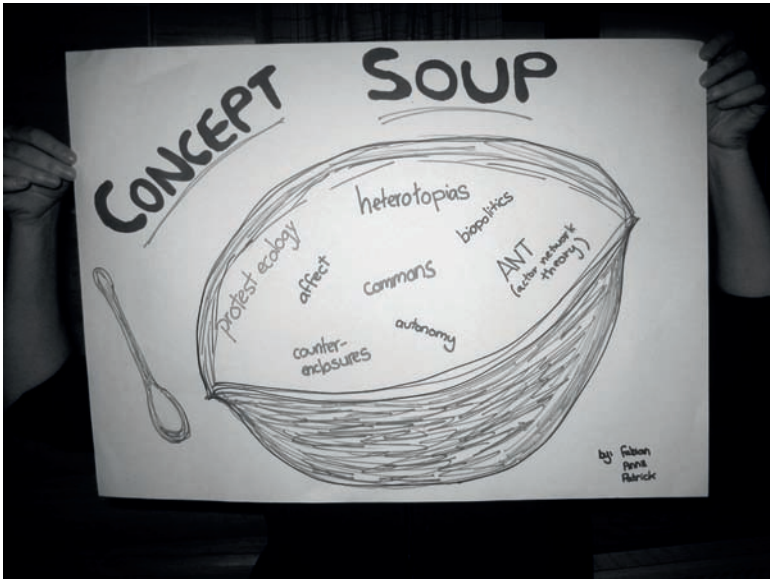 CONCEPT SOUP
heterotopias
biopolitics
protest ecology
affect
commons
ANT
(actor network
theory)
counter-
enclosures
autonomy
by: Fabian
Anna
Patrick